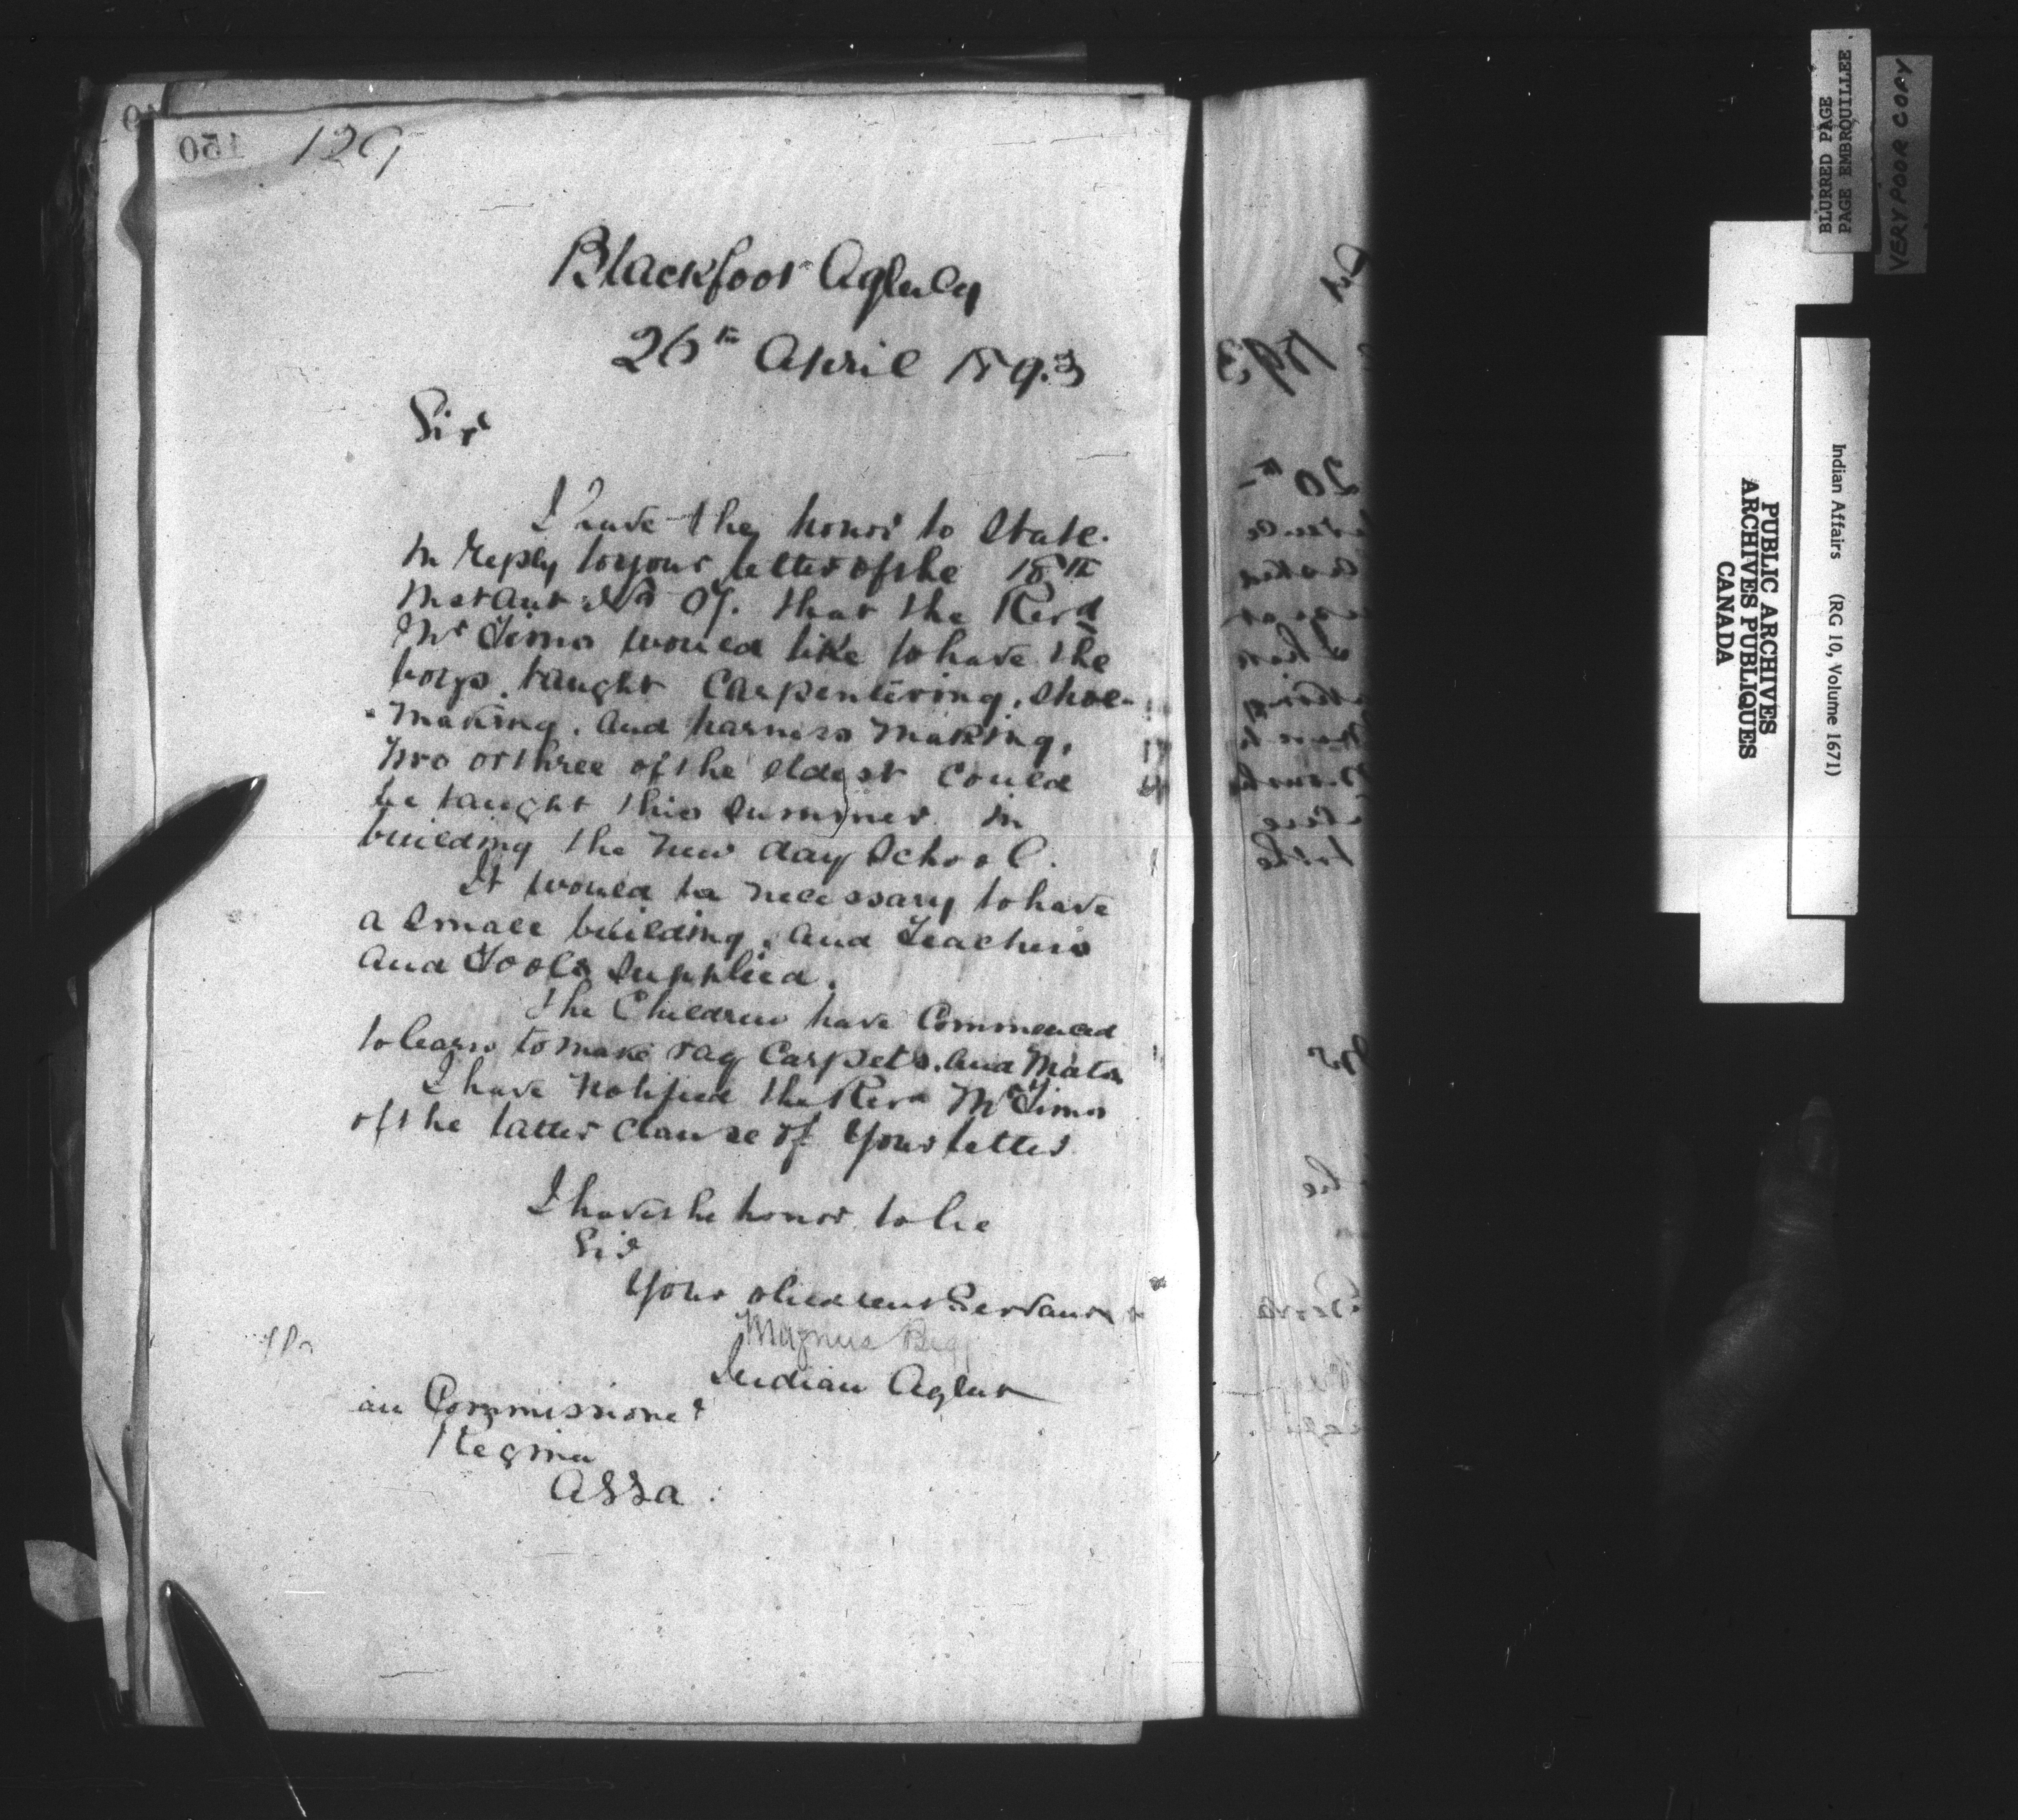 129
150
Blackfoot Agency
26th April 1893
Sir
I have the honor to State.
In reply to your letter of the 18th
Instant No 07. that the Revd
Mr Tims would like to have the
boys taught Carpentering, Shoe-
-making, and harness making,
two or three of the eldest could
be taught this summer in
building the new day School.
It would be necessary to have
a small building, and Teachers
and Tools Supplied.
The Children have Commenced
to learn to make rag Carpets, and Mats
I have notified the Revd Mr Tims
of the latter clause of your letter
I have the honor to be
Sir
Your obedient Servant
Magnus Begg
Indian Agent
an Commissioner
Regina
Assa.
1893
20th
BLURRED PAGE
PAGE EMBROUILLEE
VERY POOR COPY
PUBLIC ARCHIVES
ARCHIVES PUBLIQUES
CANADA
Indian Affairs (RG 10, Volume 1671)